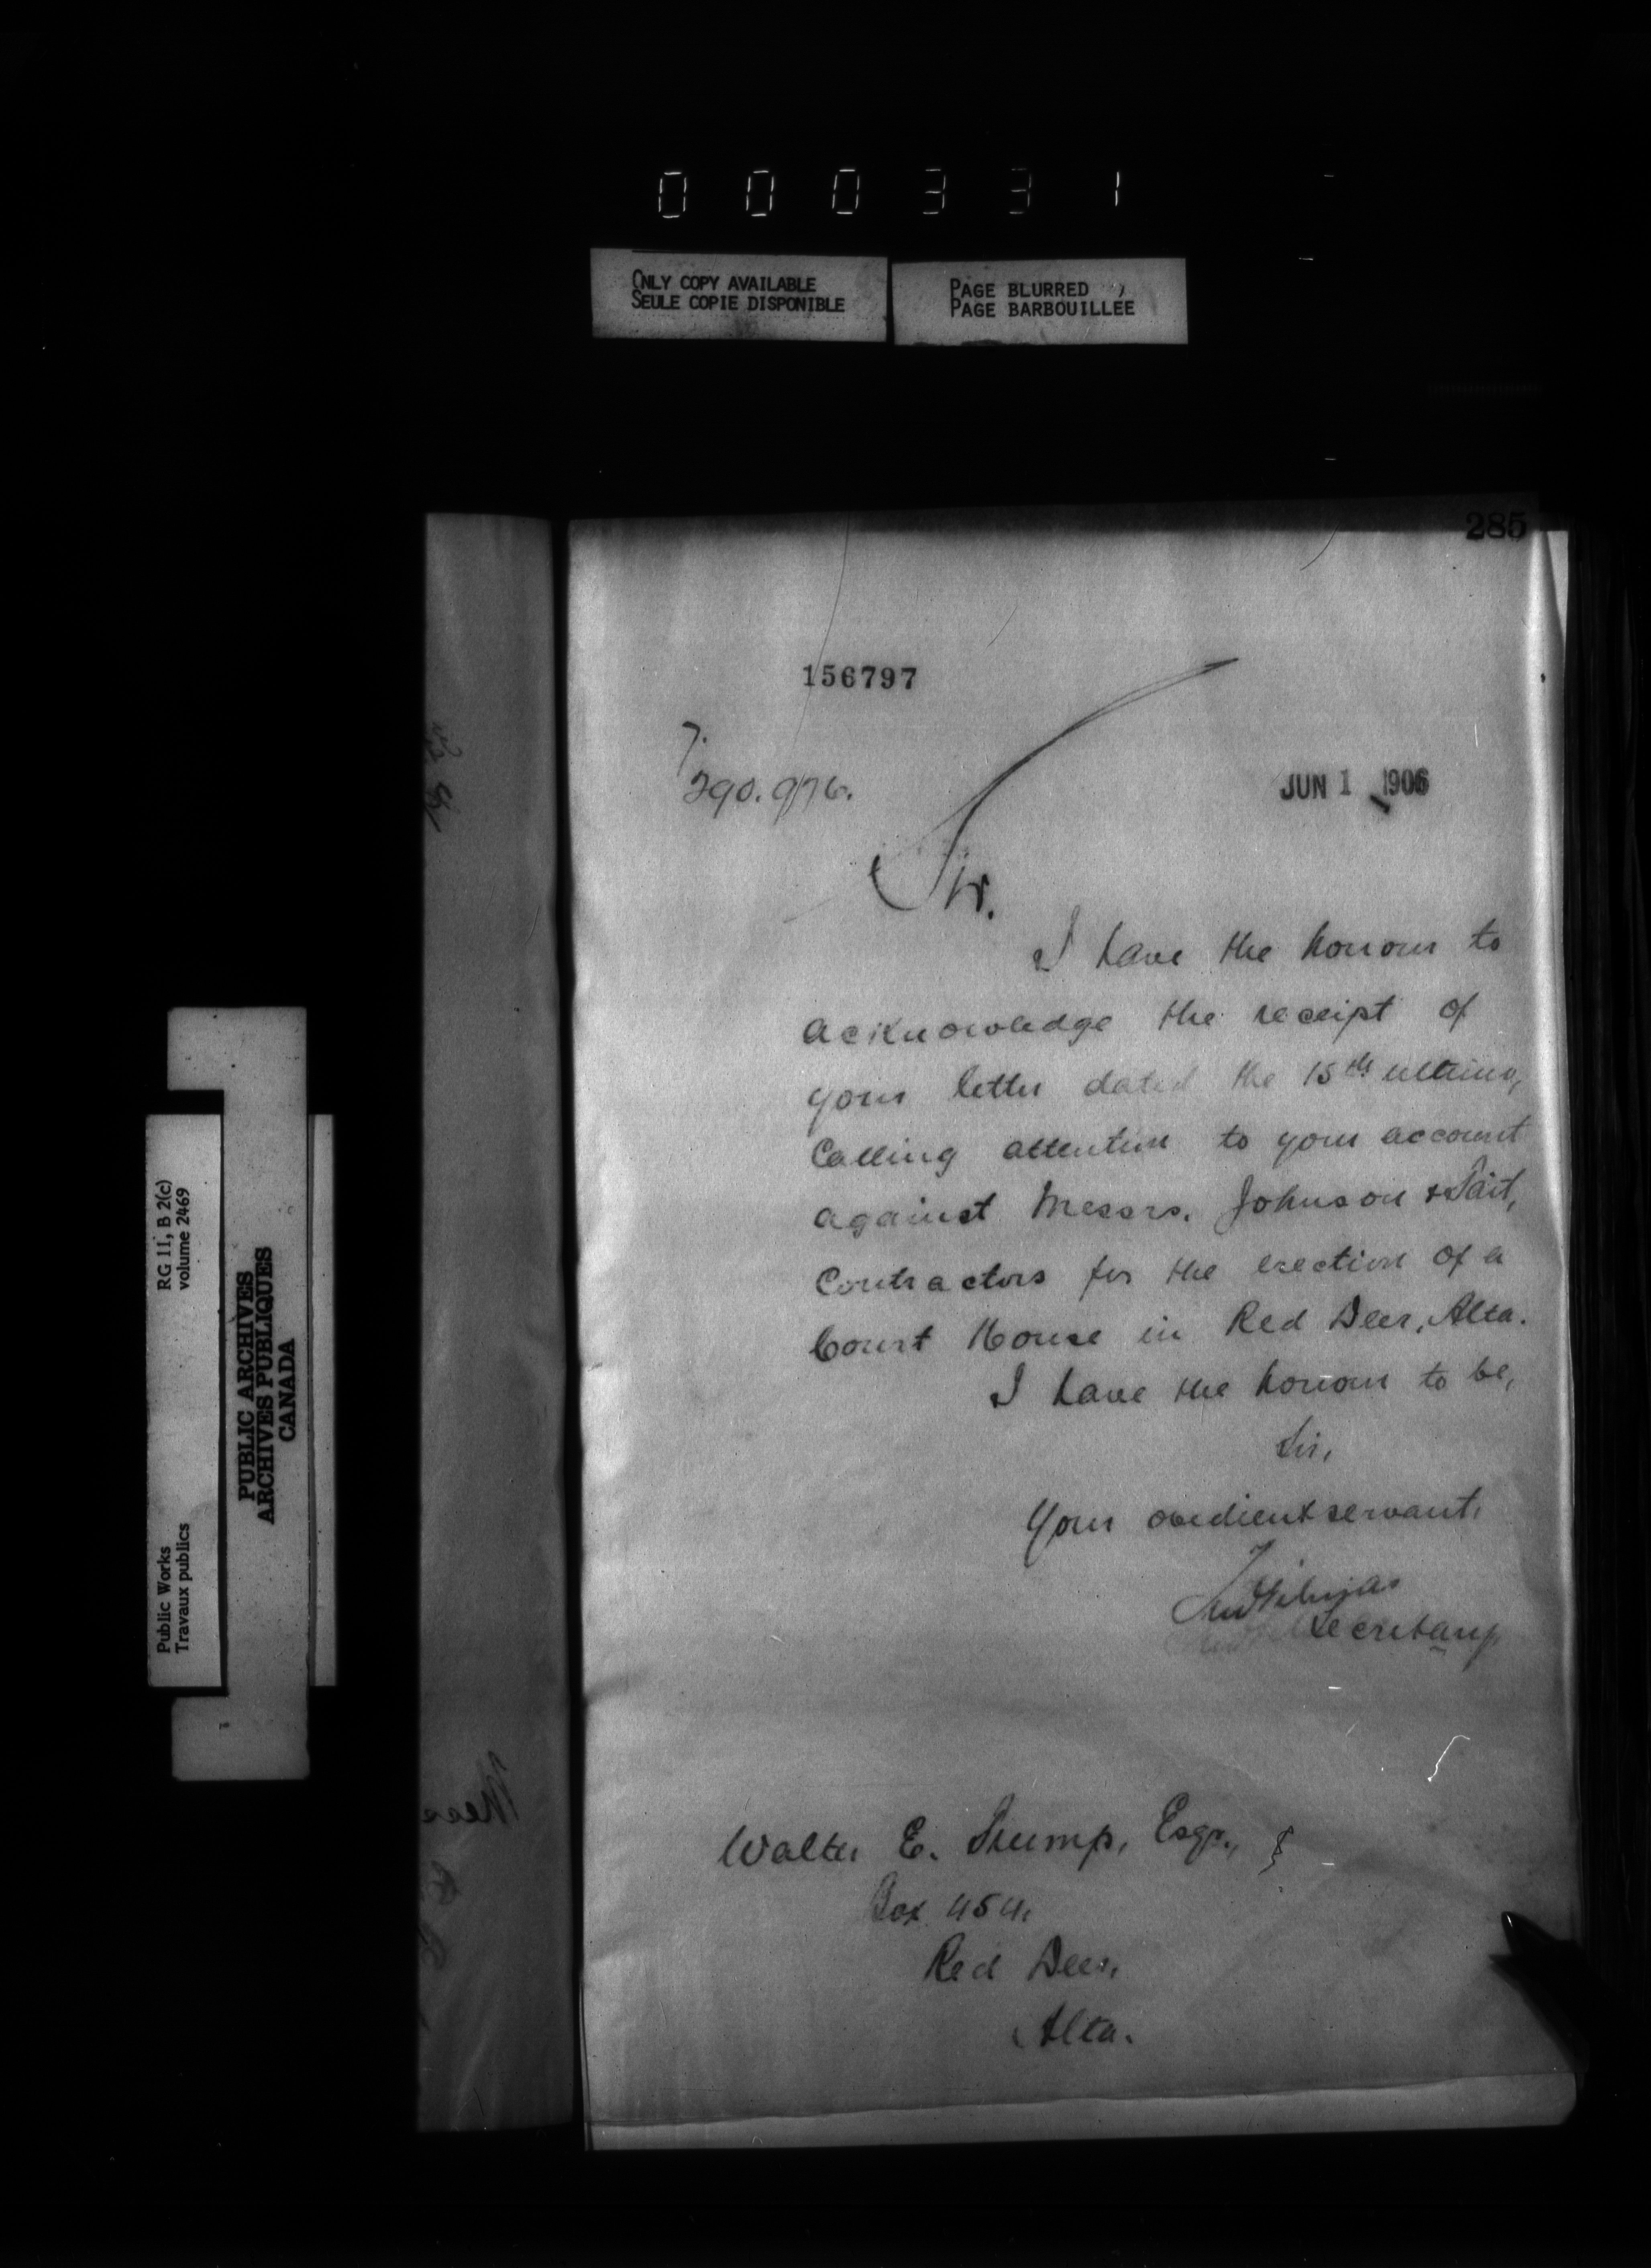 000331
ONLY COPY AVAILABLE
SEULE COPIE DISPONIBLE
PAGE BLURRED
PAGE BARBOUILLEE
285
156797
290.976.
JUN 1 1906
Sir.
I have the honour to
acknowledge the receipt of
your letter dated the 15th ultimo,
Calling attention to your account
against Messrs. Johnson & Tait,
Contractors for the erection of a
Court House in Red Deer, Alta.
I have the honour to be,
Sir,
Your obedient servant,
Secretary
Walter E. Stump, Esqr.,
Box 454,
Red Deer,
Alta.
RG 11, B 2(c)
volume 2469
PUBLIC ARCHIVES
ARCHIVES PUBLIQUES
CANADA
Public Works
Travaux publics